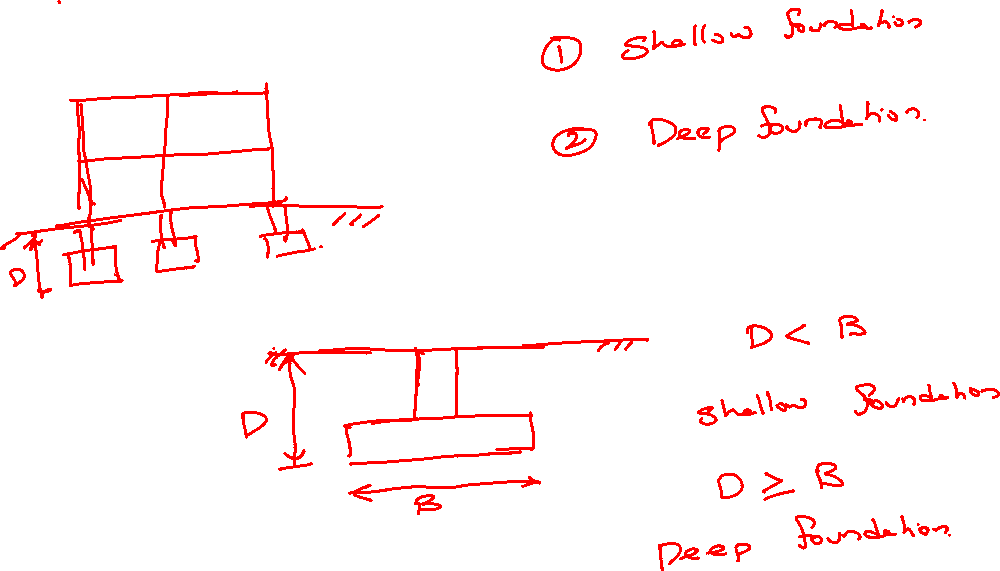 ① Shallow foundation
② Deep foundation.
D
D
B
D < B
Shallow foundation
D ≥ B
Deep foundation